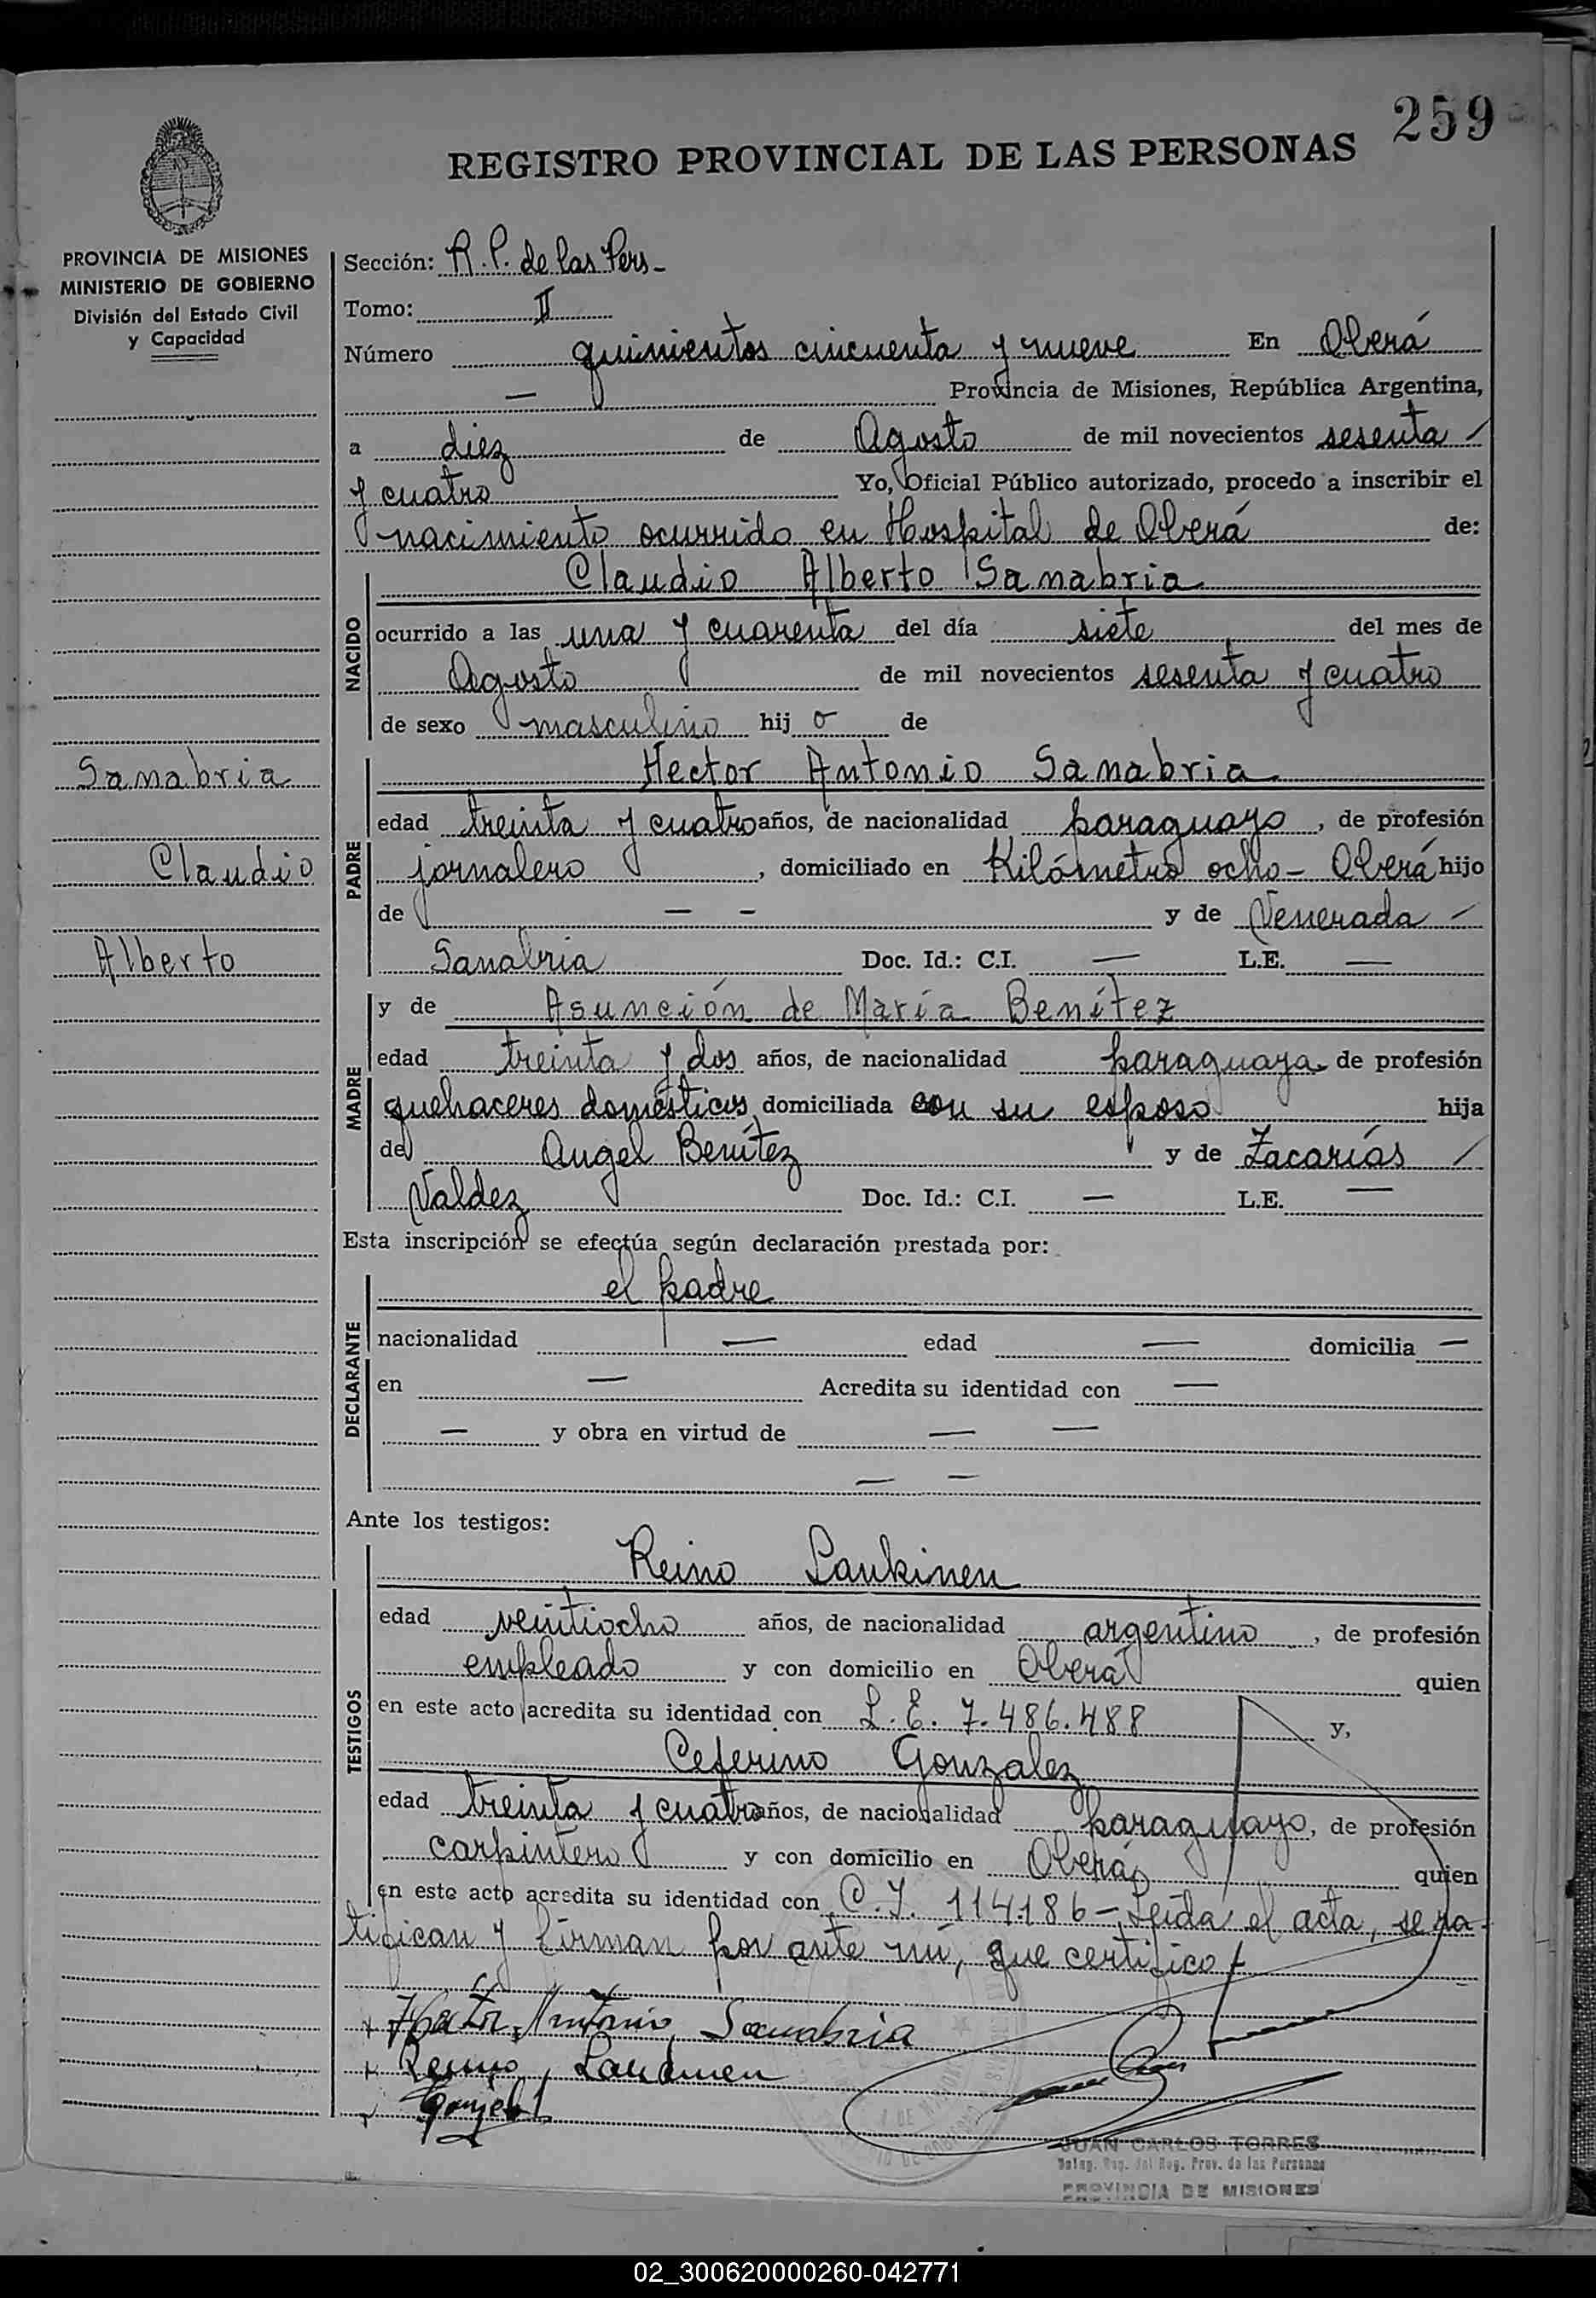 259
REGISTRO PROVINCIAL DE LAS PERSONAS
PROVINCIA DE MISIONES
MINISTERIO DE GOBIERNO
División del Estado Civil
y Capacidad
Sección: R. P. de las Pers-
Tomo: II
Número quinientos cincuenta y nueve En Oberá
— Provincia de Misiones, República Argentina,
a diez de Agosto de mil novecientos sesenta /
y cuatro Yo, Oficial Público autorizado, procedo a inscribir el
nacimiento ocurrido en Hospital de Oberá de:
NACIDO
Claudio Alberto Sanabria
ocurrido a las una y cuarenta del día siete del mes de
Agosto de mil novecientos sesenta y cuatro
de sexo masculino hij o de
Sanabria
Claudio
Alberto
PADRE
Hector Antonio Sanabria
edad treinta y cuatro años, de nacionalidad paraguayo, de profesión
jornalero, domiciliado en Kilómetro ocho - Oberá hijo
de — — y de Venerada -
Sanabria Doc. Id.: C.I. — L.E. —
MADRE
y de Asunción de María Benítez
edad treinta y dos años, de nacionalidad paraguaya de profesión
quehaceres domésticos domiciliada con su esposo hija
de Angel Benítez y de Zacarías /
Valdez Doc. Id.: C.I. — L.E. —
Esta inscripción se efectúa según declaración prestada por:
DECLARANTE
el padre
nacionalidad — edad — domicilia —
en — Acredita su identidad con —
— y obra en virtud de — —
— —
Ante los testigos:
TESTIGOS
Reino Laukinen
edad veintiocho años, de nacionalidad argentino, de profesión
empleado y con domicilio en Oberá quien
en este acto acredita su identidad con L. E. 7.486.488 y,
Ceferino Gonzalez
edad treinta y cuatro años, de nacionalidad paraguayo, de profesión
carpintero y con domicilio en Oberá quien
en este acto acredita su identidad con C. I. 114.186 - Leida el acta, se ra-
tifican y firman por ante mí, que certifico /
Hector Antonio Sanabria
Reino Laukinen
JUAN CARLOS TORRES
Reg. del Reg. Prov. de las Personas
PROVINCIA DE MISIONES
02_300620000260-042771